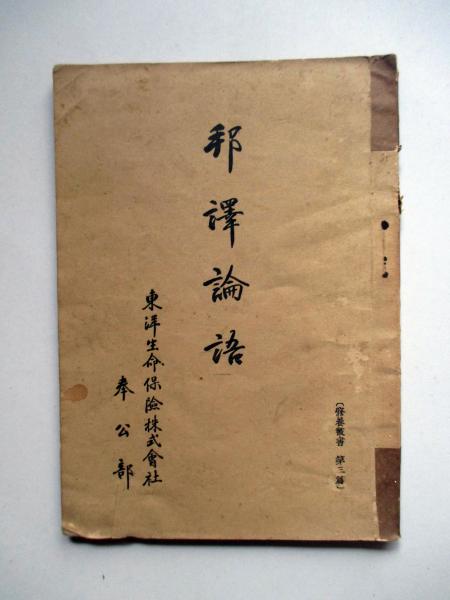 〔修養叢書 第三篇〕
邦譯論語
東洋生命保險株式會社
奉公部